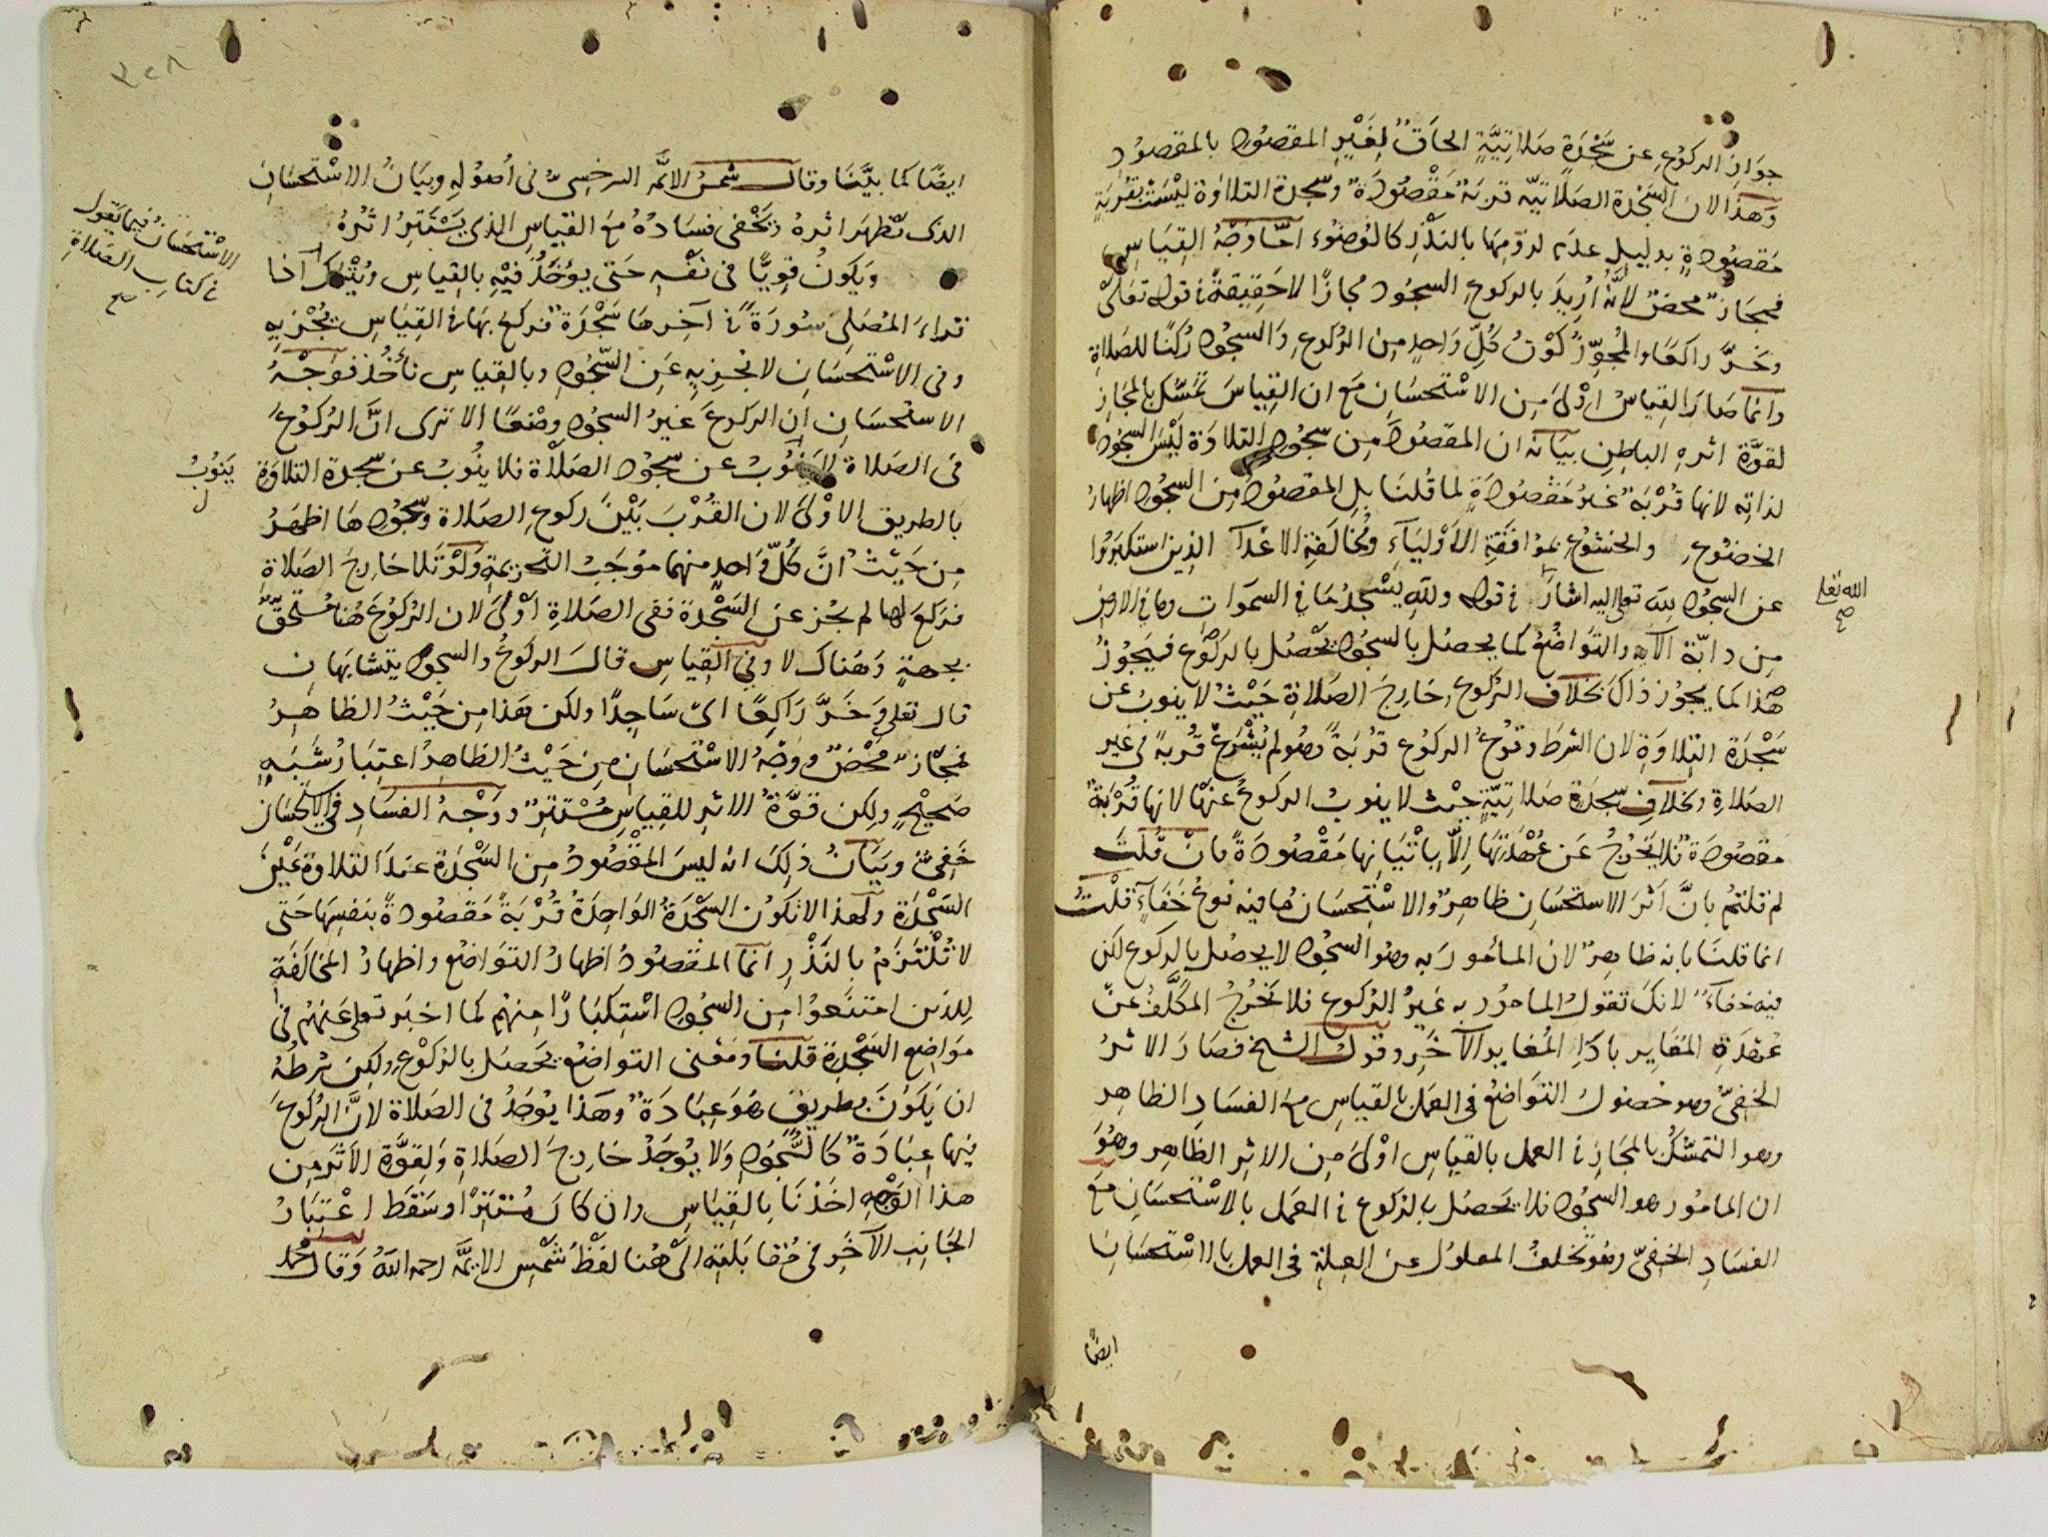 جواز الركوع عن سجدة صلاتية الحاق لغير المقصود بالمقصود
وهذا لان السجدة الصلاتيّه قربة مقصودة وسجدة التلاوة ليست بقربة
مقصودة بدليل عدم لزومها بالنذر كالوضوء امّا وجه القياس
فمجاز محض لانه اريد بالركوع السجود مجازًا لا حقيقة في قوله تعالى
وخرّ راكعا والمجوّز كون كلّ واحد من الركوع والسجود ركنا للصلاة
وانما صار القياس اولى من الاستحسان مع ان القياس تمسّك بالمجاز
لقوّة اثره الباطن بيانه ان المقصود من سجود التلاوة ليس السجود
لذاته لانها قربة غير مقصودة لما قلنا بل المقصود من السجود اظهار
الخضوع والخشوع بموافقة الاولياء ومخالفة الاعدآ الذين استكبروا
عن السجود لله تعالى اليه اشار في قوله ولله يسجد ما في السموات وما في الارض
الله تعالى صح
من دابّة الآيه والتواضع كما يحصل بالسجود يحصل بالركوع فيجوز
هذا كما يجوز ذاك بخلاف الركوع خارج الصلاة حيث لا ينوب عن
سجدة التلاوة لان الشرط وقوع الركوع قربة وهو لم يشرع قربة في غير
الصلاة وبخلاف سجدة صلاتيّة حيث لا ينوب الركوع عنها لانها قربة
مقصودة فلا يخرج عن عهدتها الّا باتيانها مقصودة فان قلت
لم قلتم بانّ اثر الاستحسان ظاهر والاستحسان ما فيه نوع خفاء قلت
انما قلنا بانه ظاهر لان المأمور به وهو السجود لا يحصل بالركوع لكن
فيه خفاء لانك تقول المامور به غير الركوع فلا يخرج المكلّف عن
عهدة المغاير باداء المغاير الآخر وقول الشيخ فصار الاثر
الخفىّ وهو حصول التواضع في العمل بالقياس مع الفساد الظاهر
وهو التمسّك بالمجاز في العمل بالقياس اولى من الاثر الظاهر وهو
ان المامور هو السجود فلا يحصل بالركوع في العمل بالاستحسان مع
الفساد الخفىّ وهو تخلف المعلول عن العلة في العمل بالاستحسان
ايضًا
٣٠٨
ايضًا كما بيّنّا وقال شمس الائمّه السرخسىّ في اصوله وبيان الاستحسان
الذى يظهر اثره ويخفى فساده مع القياس الذى يستتر اثره
ويكون قويّا في نفسه حتى يؤخذ فيه بالقياس ويترك اذا
الاستحسان فيما يقول
في كتاب الصلاة
صح
قراء المصلى سورة في آخرها سجدة فركع بها في القياس يجزيه
وفى الاستحسان لا يجزيه عن السّجود وبالقياس نأخذ فوجه
الاستحسان ان الركوع غير السجود وضعًا الا ترى انّ الركوع
في الصلاة لا ينوب عن سجود الصلاة فلا ينوب عن سجدة التلاوة
ينوب ل
بالطريق الاولى لان القرب بين ركوع الصلاة وسجودها اظهر
من حيث انّ كلّ واحد منهما موجب التحريمة ولو تلا خارج الصلاة
فركع لها لم يجز عن السجدة ففى الصلاة اولى لان الركوع هنا مستحقّ
بجهة وهناك لا وفي القياس قال الركوع والسجود يتشابهان
قال تعلى وخرّ راكعًا اىّ ساجدًا ولكن هذا من حيث الظاهر
مجاز محض ووجه الاستحسان من حيث الظاهر اعتبار شبه
صحيح ولكن قوّة الاثر للقياس مستتر ووجه الفساد في الاستحسان
خفىّ وبيان ذلك انه ليس المقصود من السجدة عند التلاوة عين
السجدة ولهذا لا تكون السجدة الواحدة قربة مقصودة بنفسها حتى
لا تلتزم بالنذر انما المقصود اظهار التواضع واظهار المخالفة
للذين امتنعوا من السجود استكبارًا منهم كما اخبر تعلى عنهم في
مواضع السجدة قلنا ومعنى التواضع يحصل بالركوع ولكن شرطه
ان يكون بطريق هو عبادة وهذا يوجد في الصلاة لانّ الركوع
فيها عبادة كالسجود ولا يوجد خارج الصلاة ولقوّة الاثر من
هذا الوجه اخذنا بالقياس وان كان مستترًا وسقط اعتبار
الجانب الآخر في مقابلته الى هنا لفظ شمس الايمّة رحمه الله وقال محمد